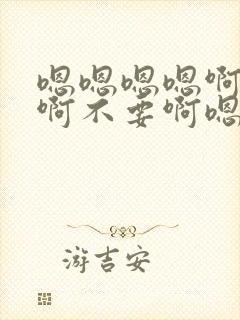 嗯嗯嗯嗯啊
啊不要啊嗯
游吉安